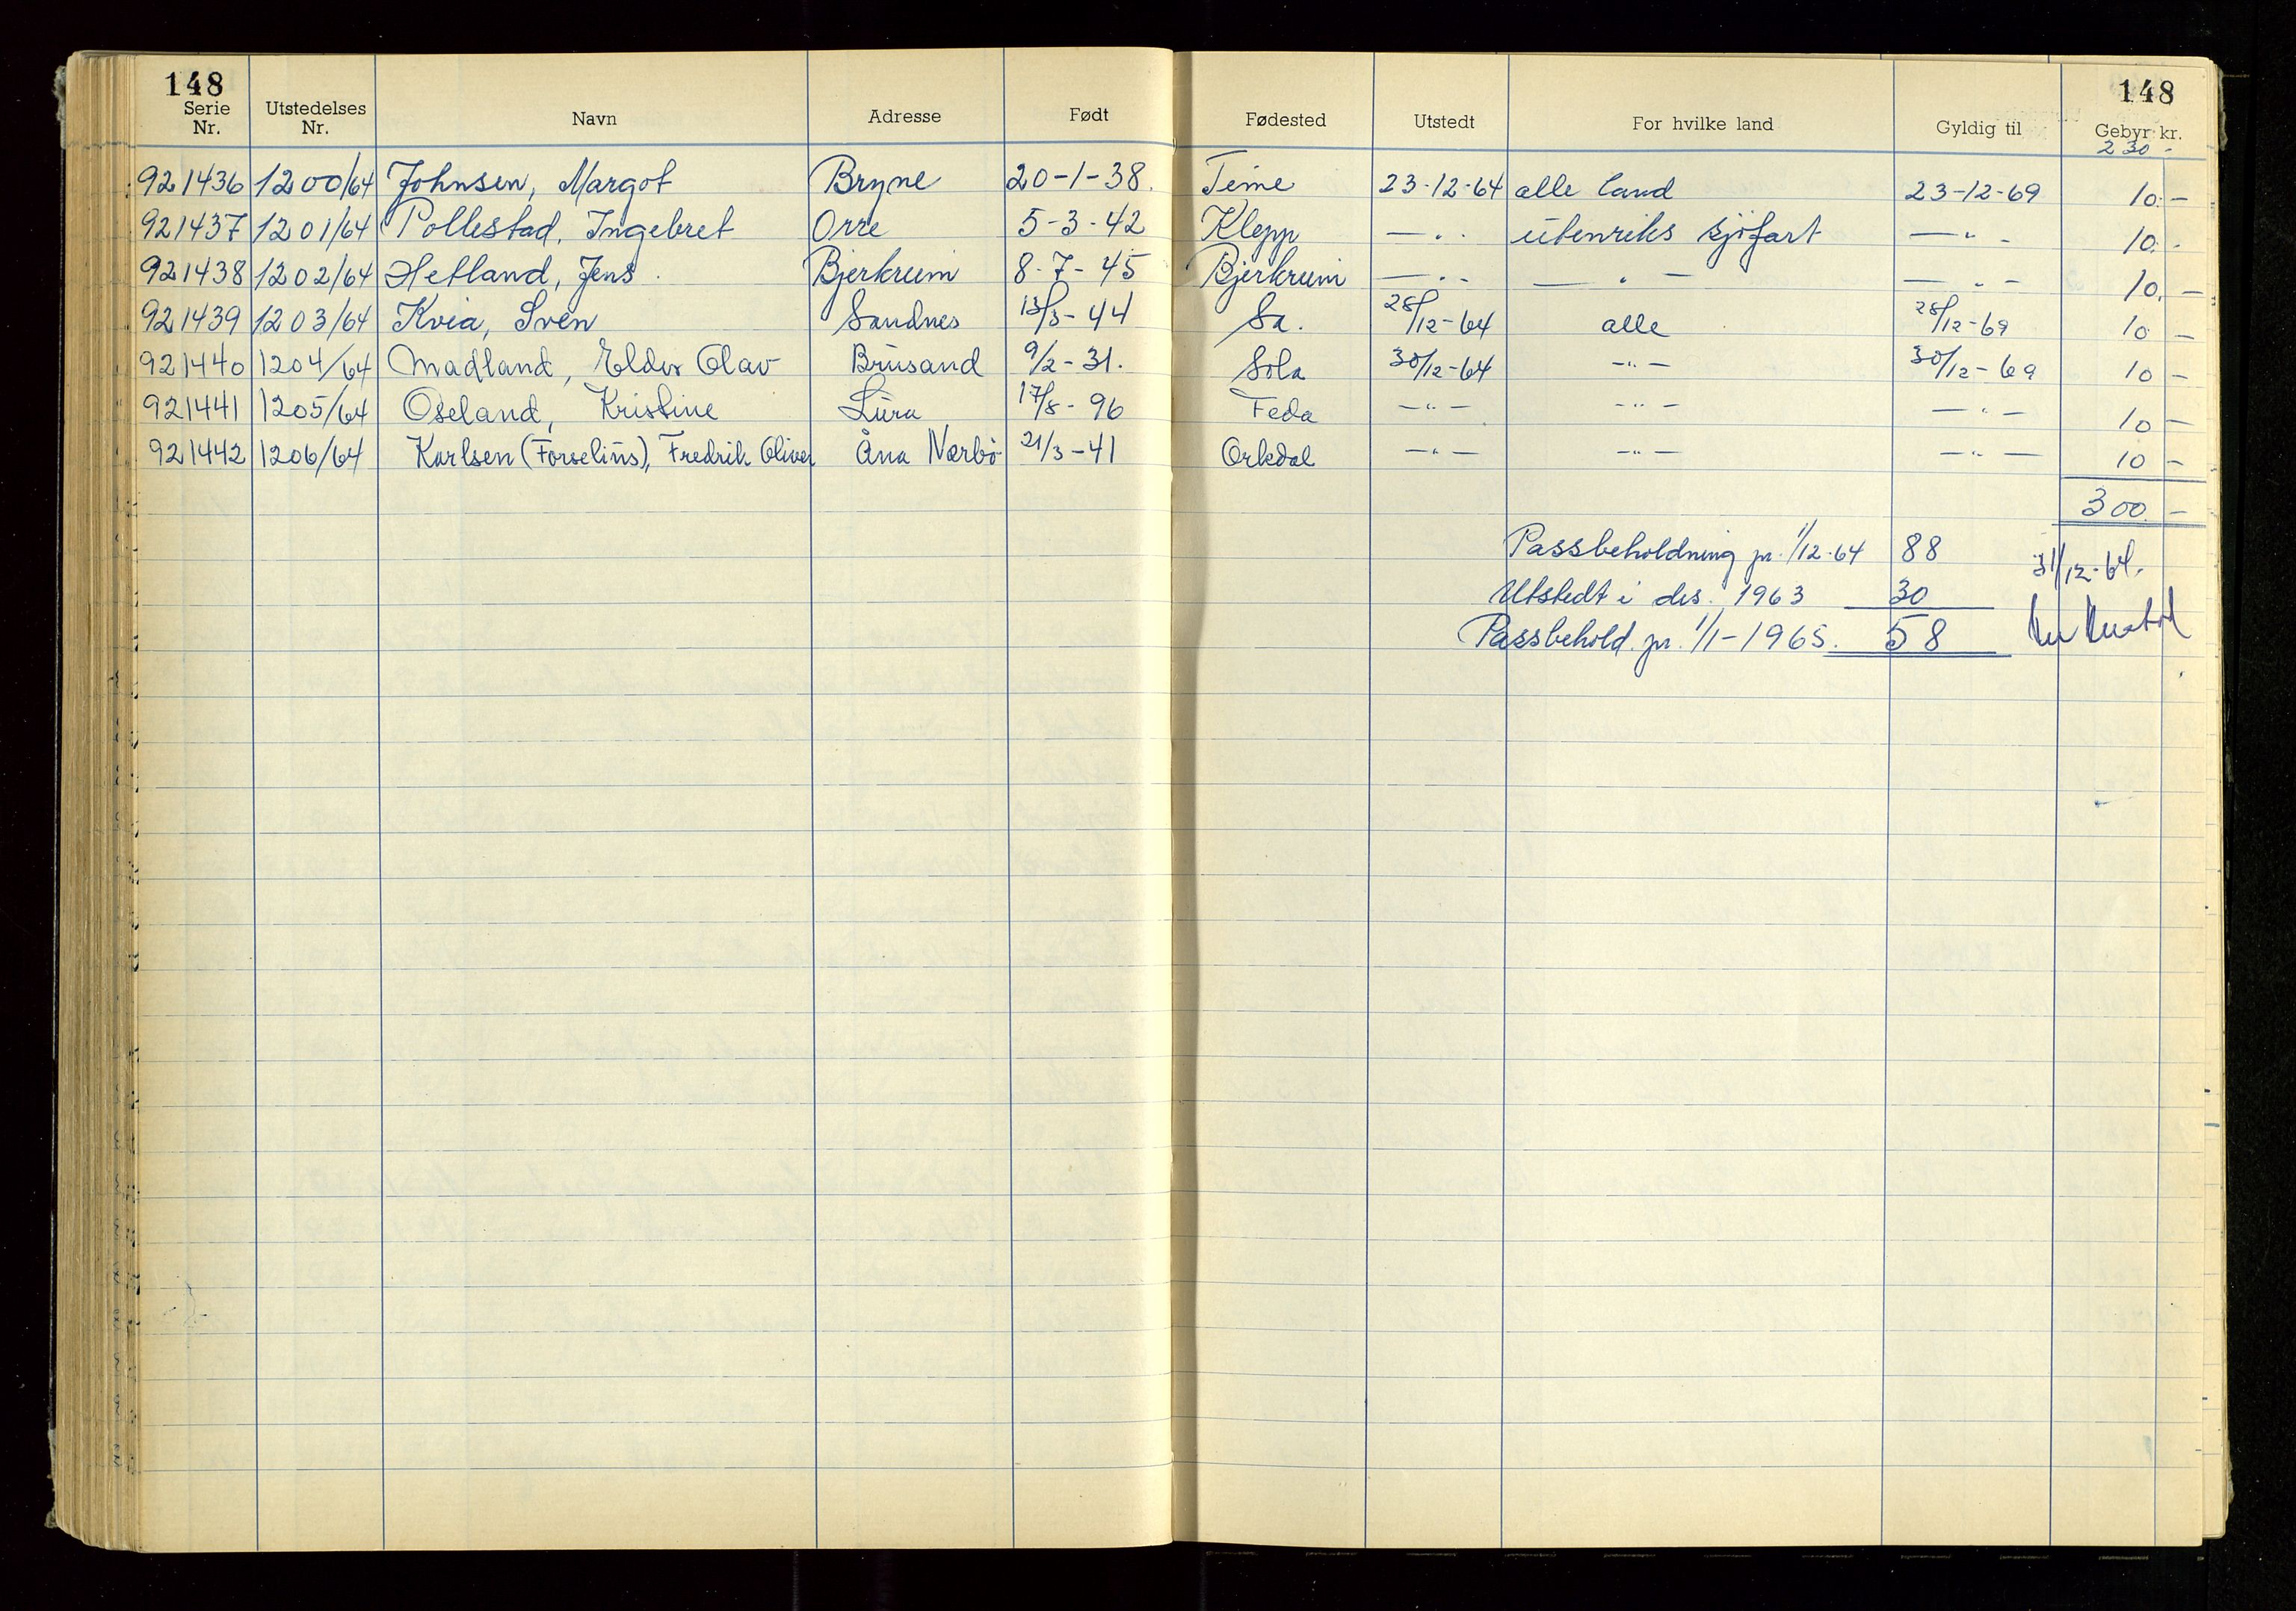 148 148
Serie Nr. Utstedelses Nr. Navn Adresse Født Fødested Utstedt For hvilke land Gyldig til Gebyr kr.
230 -
921436 1200/64 Johnsen, Margot Bryne 20-1-38. Time 23-12-64 alle land 23-12-69 10.-
921437 1201/64 Pollestad, Ingebret Orre 5-3-42 Klepp —"- utenriks sjöfart —"- 10.-
921438 1202/64 Hetland, Jens. Bjerkreim 8-7-45 Bjerkreim —"- —"— —"- 10.-
921439 1203/64 Kvia, Sven Sandnes 13/3-44 Sa. 28/12-64 alle 28/12-69 10 -
921440 1204/64 Madland, Olav Brusand 9/2-31. Sola 30/12-64 -"- 30/12-69 10 -
921441 1205/64 Oseland, Kristine Lura 17/8-96 Feda -"- -"- -"- 10 -
921442 1206/64 Karlsen (Forselius), Fredrik Oliver Åna Nærbö 21/3-41 Orkdal -"- -"- -"- 10 -
300 -
Passbeholdning pr. 1/12-64 88 31/12-64.
Utstedt i des. 1963 30
Passbehold. pr. 1/1-1965. 58